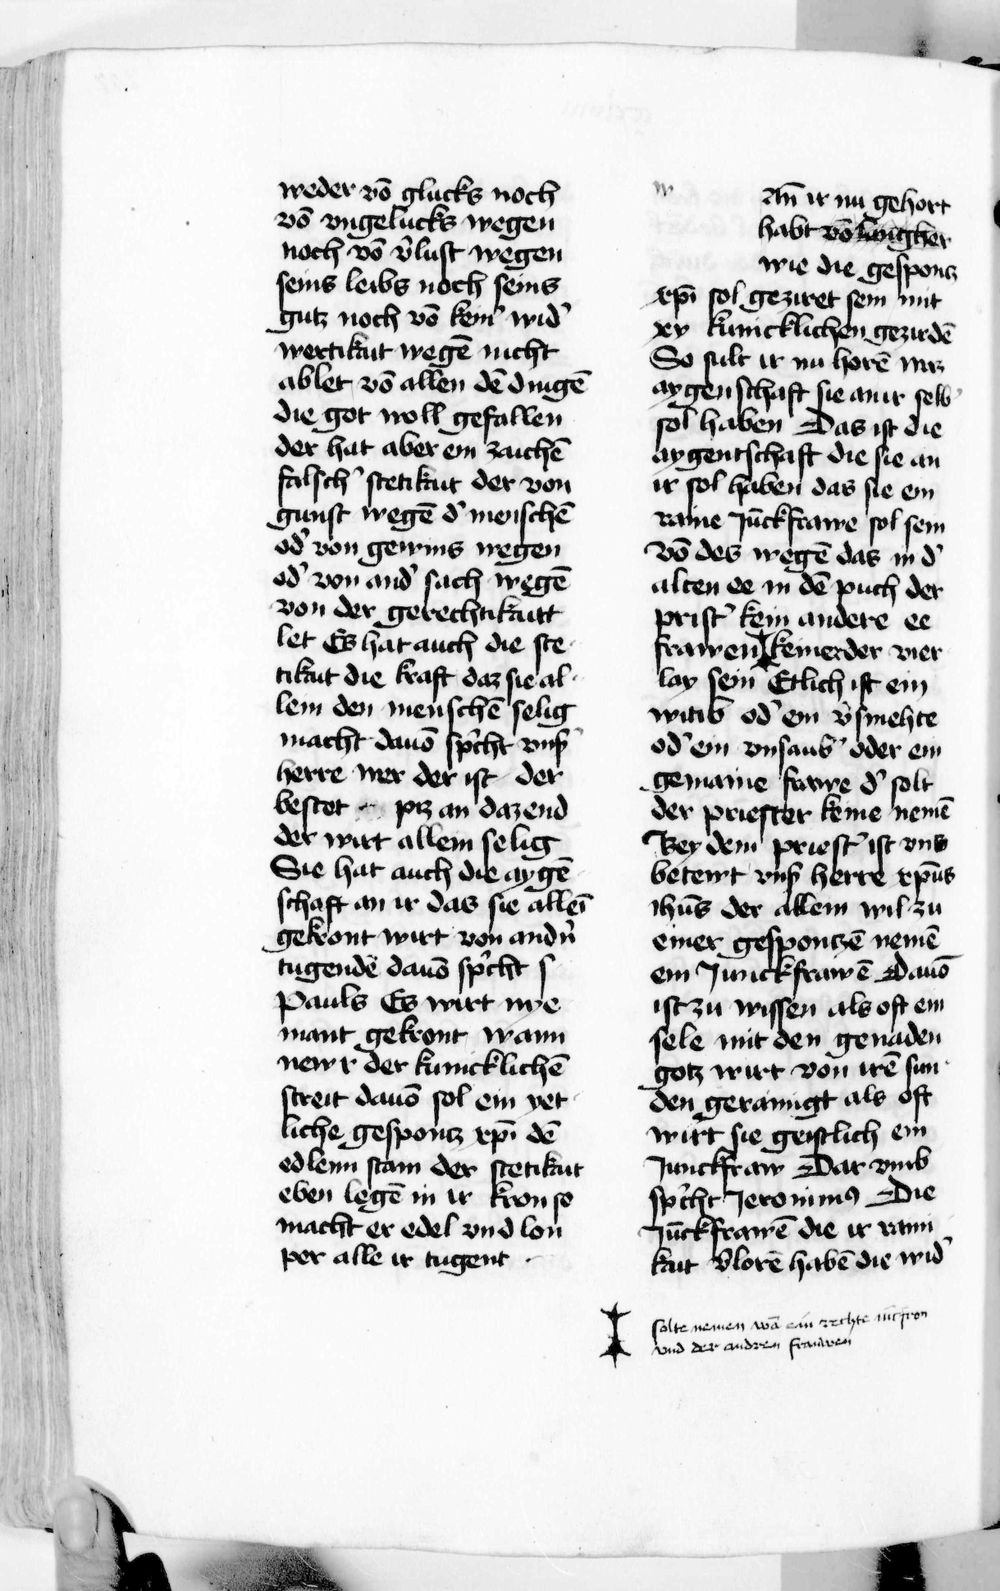 weder vō glucks noch
vō vngelucks wegen
noch vō v̉lust wegen
seins leibs noch seins
gutz noch vō kein̉ wid̉
wertikait wegē nicht
ablet vō allen dē dingē
die got woll gefallen
der hat aber ein zaichē
falsch̉ stetikait der von
gunst wegē d̉ menschē
od̉ von gewins wegen
od̉ von and̉ sach wegē
von der gerechtikaitt
let Es hat auch die ste
tikait die kraft daz sie al
lein den menschē selig
macht dauō sp̉cht vns̉
herre wer der ist der
bestet piz an daz end
der wirt allein selig
Sie hat auch die aygē
schaft an ir das sie alleī
gekront wirt von andn̉
tugendē dauō sp̉cht s
Pauls Es wirt nye
mant gekront wann
newr der kunicklichē
streit dauō sol ein yet
liche gespontz xp̄i dē
edlenn stain der stetikait
eben legē in ir kron so
macht er edel vnd lon
per alle ir tugent
w
An̄ ir nu gehort
habt vō
wie die gespontz
xp̄i sol geziret sein mit
xv kunicklichen gezirdē
So sult ir nu horē waz
aygenschaft sie an ir selb̉
sol haben Das ist die
aygentschaft die sie an
ir sol haben das sie ein
raine Jūckfrawe sol sein
vō des wegē das in d̉
alten ee in dē puch der
prist̉ kein andere ee
frawen keiner der vier
lay sein Etlich ist ein
witib od̉ ein v̉smehte
od̉ ein vnsaub̉ oder ein
gemaine frawe d̉ solt
der priester keine nemē
Bey dem priest̉ ist vns
betewt vns̉ herre xp̄us
ihūs der allein wil zu
einer gespontzē nemē
ein Junckfrawē Dauō
ist zu wissen als oft ein
sele mit den genaden
gotz wirt von irē sun
den gerainigt als oft
wirt sie geistlich ein
Junckfraw Dar vmb
sp̉cht Jeronimꝰ Die
Jūckfrawē die ir raini
kait v̉lorē habē die wid̉
solte nemen wā ein rechte iūcfron
vnd der andren frauwen